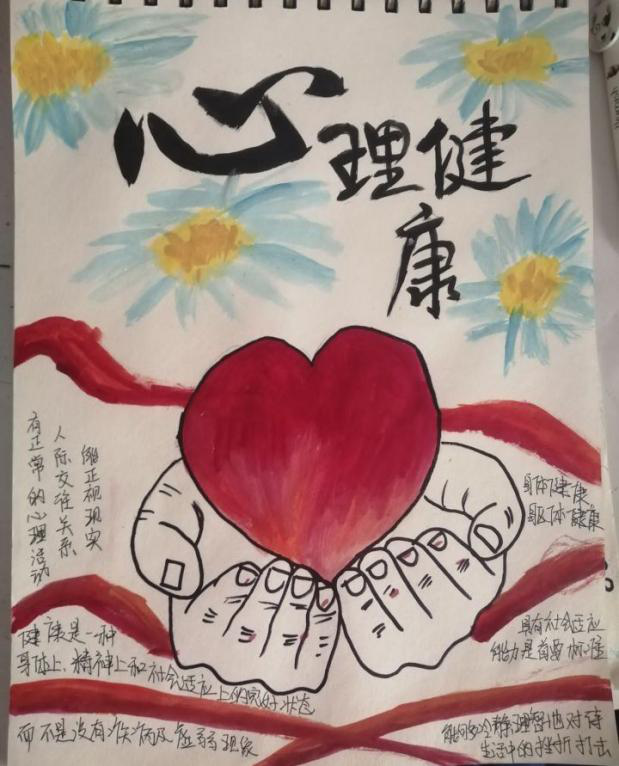 心理健
康
有正常的心理活动
人际交往关系
能正视现实
身体健康
躯体健康
健康是一种
身体上、精神上和社会适应上的良好状态
而不是没有疾病及虚弱现象
具有社会适应
能力是首要标准
能够冷静理智地对待
生活中的挫折打击